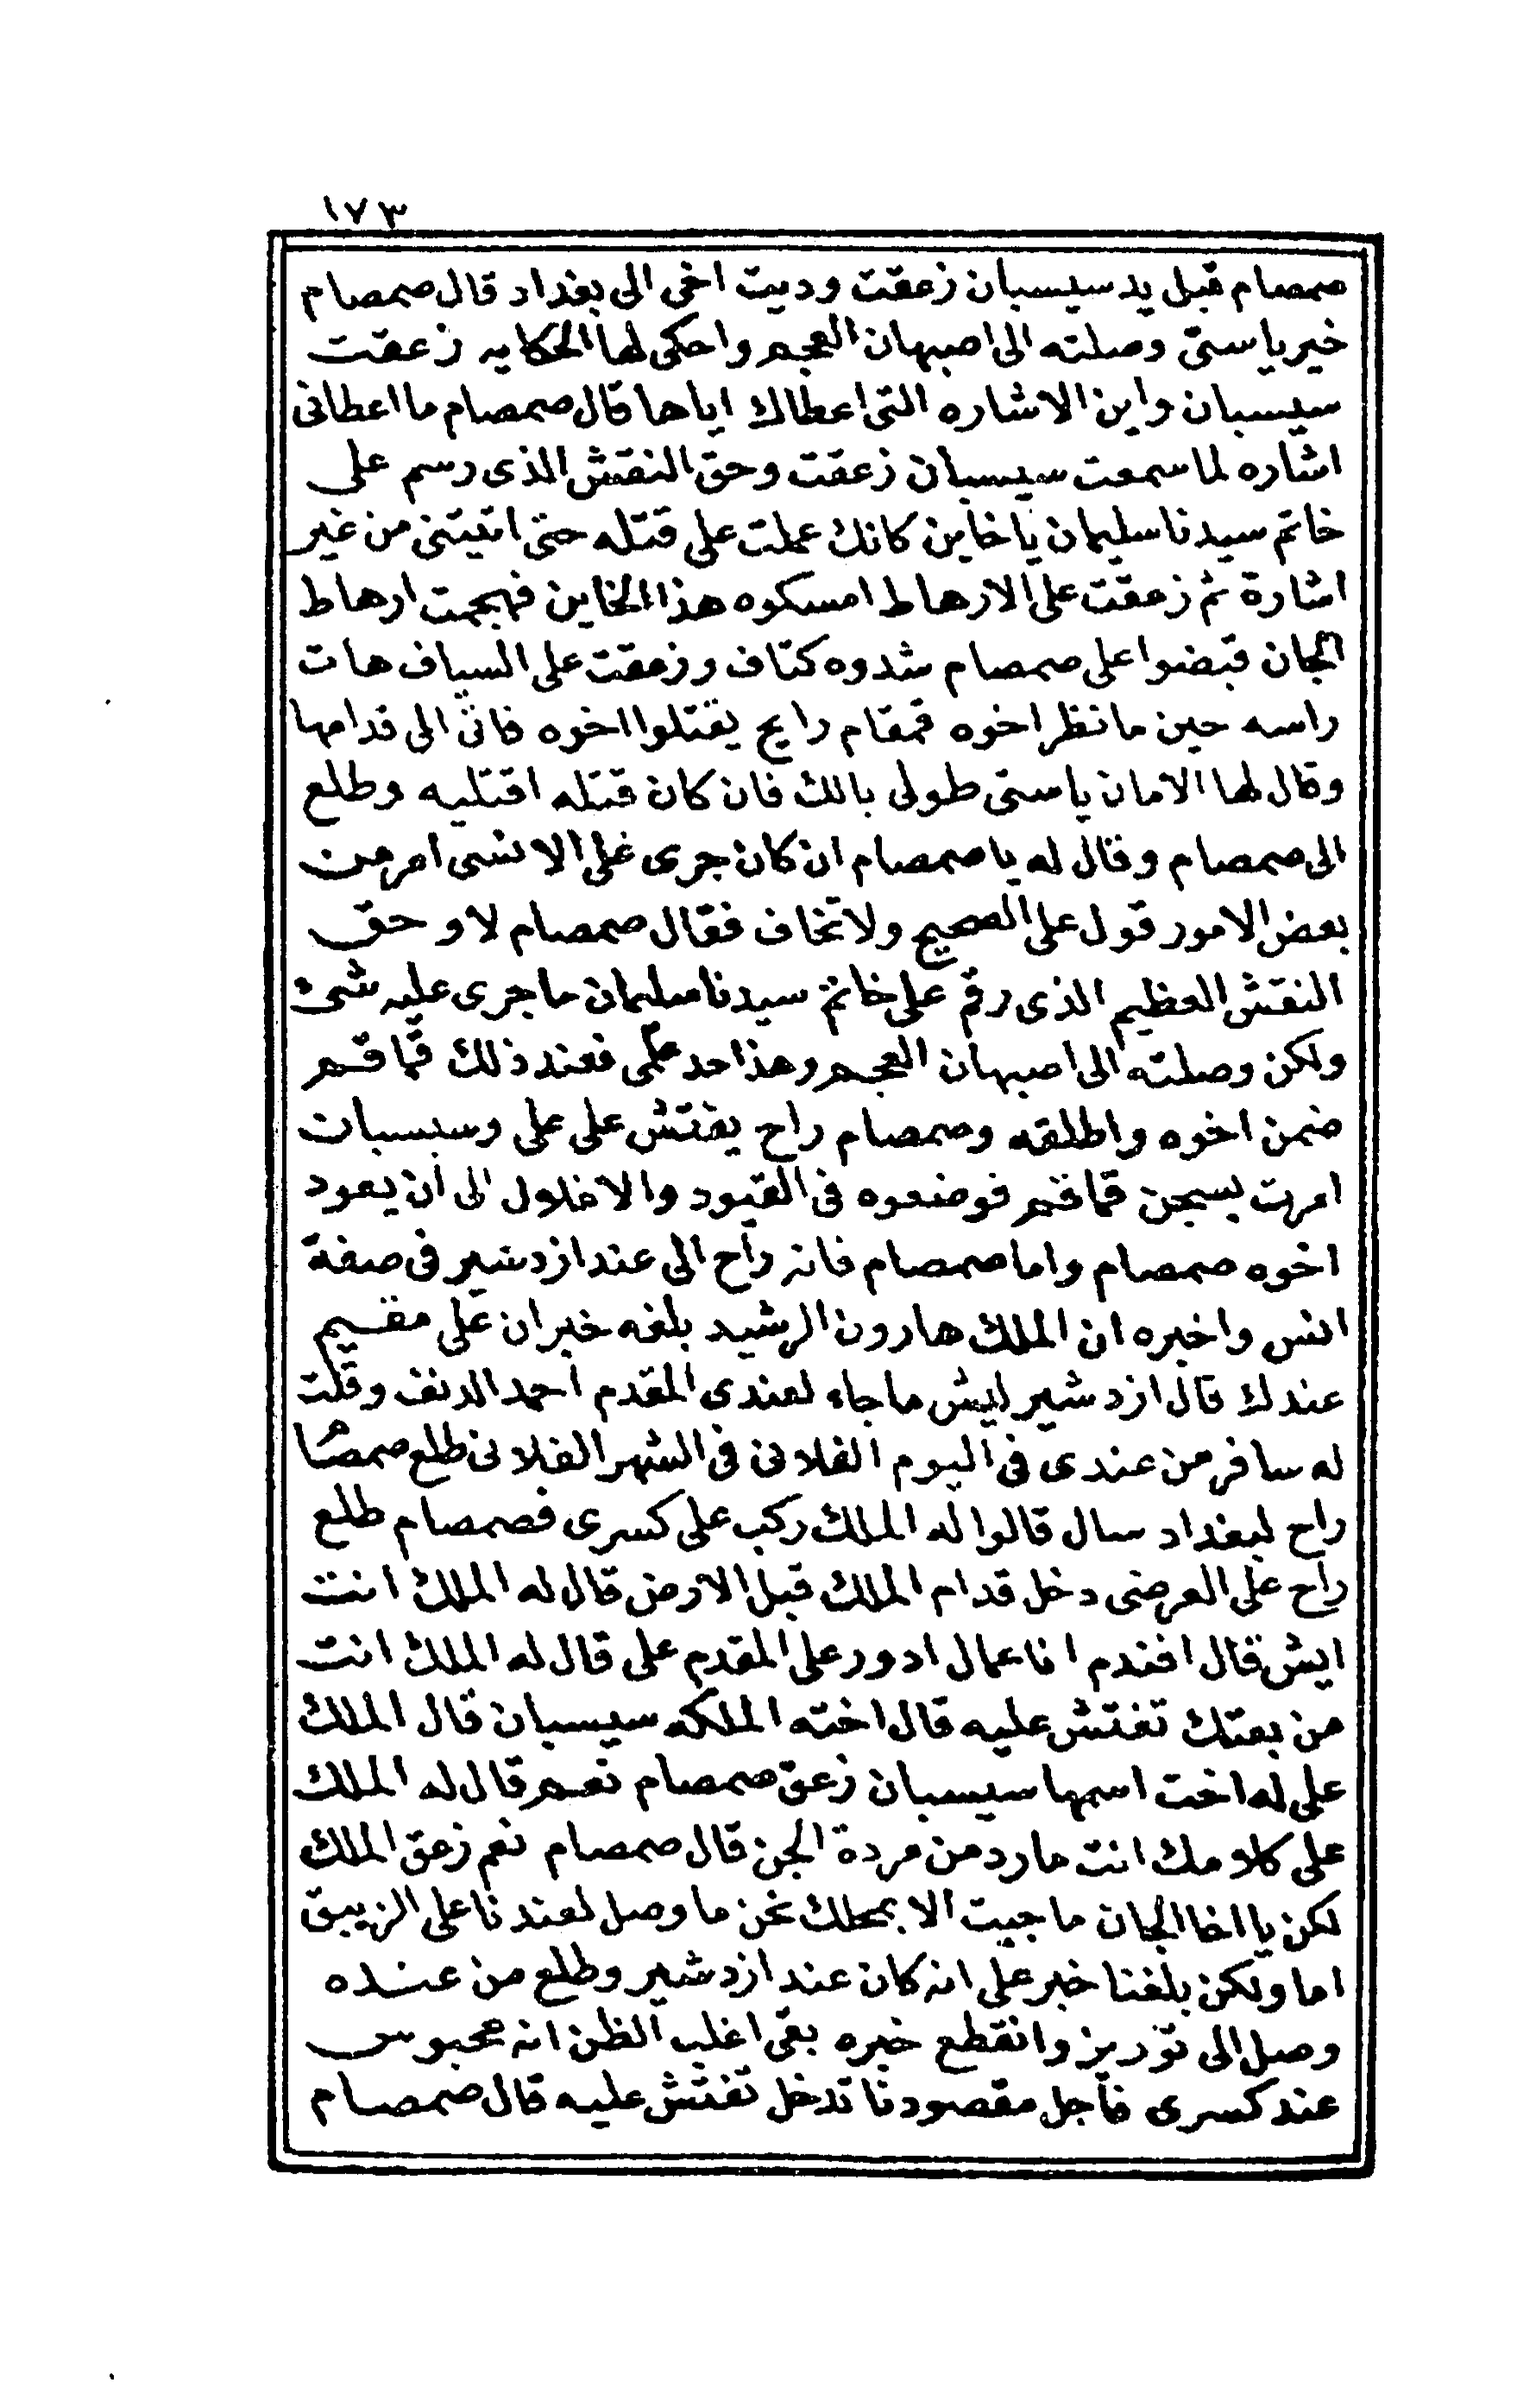 ١٧٣
صمصام قبل يد سيسبان زعقت وديت اخى الى بغداد قال صمصام
خير ياستى وصلته الى اصبهان العجم واحكى لها الحكايه زعقت
سيسبان واين الاشاره التى اعطاك اياها قال صمصام ما اعطانى
اشاره لما سمعت سيسبان زعقت وحق النقش الذى رسم على
خاتم سيدنا سليمان يا خاين كانك عملت على قتله حتى اتيتنى من غير
اشارة ثم زعقت على الارهاط امسكوه هذا الخاين فهجمت ارهاط
الجان قبضوا على صمصام شدوه كتاف وزعقت على السياف هات
راسه حين ما نظر اخوه قمقام رايح يقتلوا اخوه فاتى الى قدامها
وقال لها الامان ياستى طولى بالك فان كان قتله اقتليه وطلع
الى صمصام وقال له يا صمصام ان كان جرى على الانسى امر من
بعض الامور قول على الصحيح ولا تخاف فقال صمصام لا وحق
النقش العظيم الذى رقم على خاتم سيدنا سليمان ما جرى عليه شئ
ولكن وصلته الى اصبهان العجم وهذا حد علمى فعند ذلك قماقم
ضمن اخوه واطلقه وصمصام راح يفتش على على وسيسبان
امرت بسجن قماقم فوضعوه فى القيود والاغلال الى ان يعود
اخوه صمصام واما صمصام فانه راح الى عند ازدشير فى صفة
انس واخبره ان الملك هارون الرشيد بلغه خبر ان على مقيم
عندك قال ازدشير ليش ما جاء لعندى المقدم احمد الدنف وقلت
له سافر من عندى فى اليوم الفلانى فى الشهر الفلانى طلع صمصام
راح لبغداد سال قالوا له الملك ركب على كسرى فصمصام طلع
راح على العرضى دخل قدام الملك قبل الارض قال له الملك انت
ايش قال افندم انا عمال ادور على المقدم على قال له الملك انت
من بعتك تفتش عليه قال اخته الملكه سيسبان قال الملك
على له اخت اسمها سيسبان زعق صمصام نعم قال له الملك
على كلامك انت مارد من مردة الجن قال صمصام نعم زعق الملك
لكن يا اخا الجان ما جيت الا بمحلك نحن ما وصل لعندنا على الزيبق
اما ولكن بلغنا خبر على انه كان عند ازدشير وطلع من عنده
وصل الى توريز وانقطع خبره بقى اغلب الظن انه محبوس
عند كسرى فاجل مقصودنا تدخل تفتش عليه قال صمصام